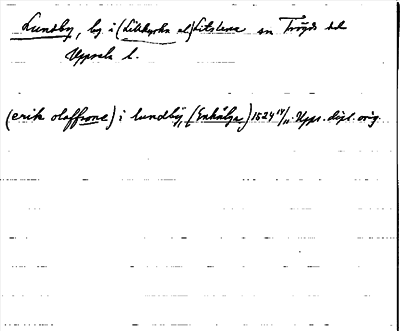 Lundby, by i (Lillkyrka el) Litslena sn Trögds hd
Uppsala l.
(erik olaffsone) i lundby, (Enhälja) 1524 14/11. Upps. dipl. orig.